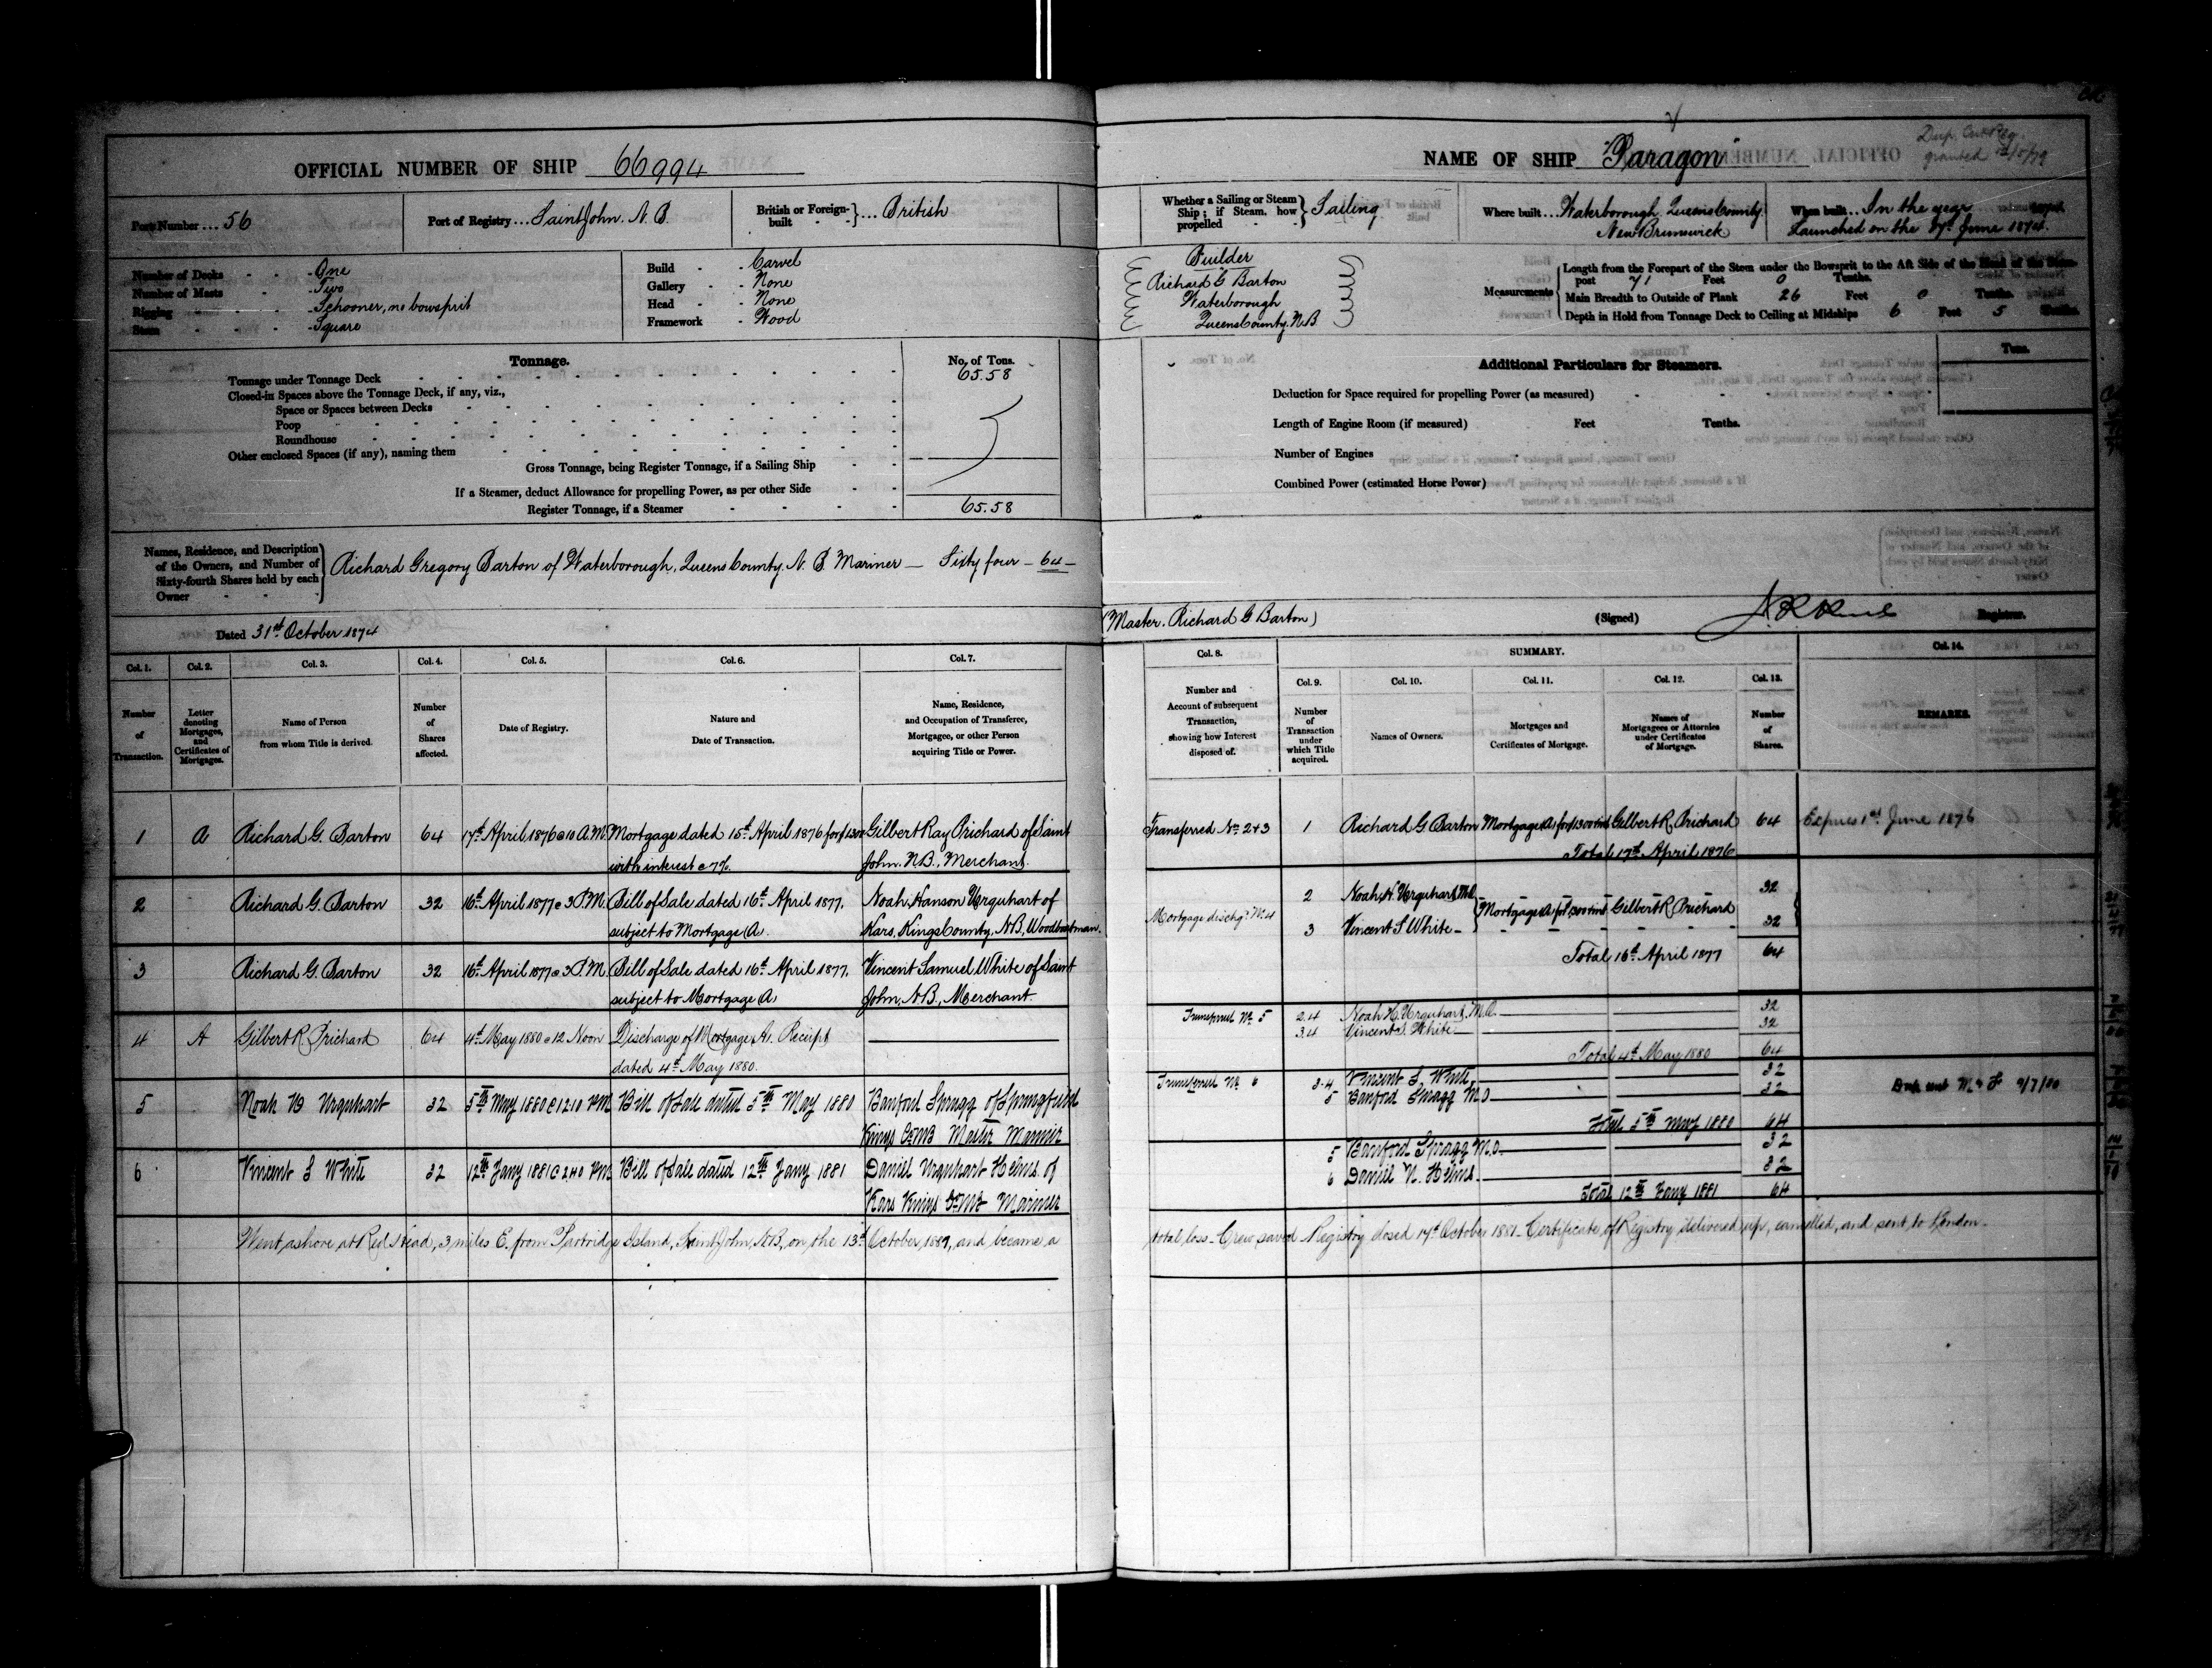 OFFICIAL NUMBER OF SHIP 66994
Port Number ... 56
Port of Registry ... Saint John. N. B.
British or Foreign-built } ... British
Number of Decks - One
Number of Masts - Two
Rigging - Schooner, no bowsprit
Stem - Square
Build - Carvel
Gallery - None
Head - None
Framework - Wood
Tonnage.
No. of Tons.
Tonnage under Tonnage Deck 65.58
Closed-in Spaces above the Tonnage Deck, if any, viz.,
Space or Spaces between Decks
Poop
Roundhouse
Other enclosed Spaces (if any), naming them
Gross Tonnage, being Register Tonnage, if a Sailing Ship
If a Steamer, deduct Allowance for propelling Power, as per other Side
Register Tonnage, if a Steamer 65.58
Names, Residence, and Description of the Owners, and Number of Sixty-fourth Shares held by each Owner
Richard Gregory Barton of Waterborough, Queens County, N. B. Mariner — Sixty four – 64 –
Dated 31st October 1874
Col. 1. Col. 2. Col. 3. Col. 4. Col. 5. Col. 6. Col. 7.
Number of Transaction.
Letter denoting Mortgages, and Certificates of Mortgages.
Name of Person from whom Title is derived.
Number of Shares affected.
Date of Registry.
Nature and Date of Transaction.
Name, Residence, and Occupation of Transferee, Mortgagee, or other Person acquiring Title or Power.
1 A Richard G. Barton 64 17th April 1876 @ 10 A.M. Mortgage dated 15th April 1876 for $1300 Gilbert Ray Prichard of Saint
with interest @ 7%. John. N.B. Merchant.
2 Richard G. Barton 32 16th April 1877 @ 3 P.M. Bill of Sale dated 16th April 1877. Noah Hanson Urquhart of
subject to Mortgage (A). Kars, Kings County, N.B, Woodboatman.
3 Richard G. Barton 32 16th April 1877 @ 3 P.M. Bill of Sale dated 16th April 1877. Vincent Samuel White of Saint
subject to Mortgage (A) John, N.B., Merchant.
4 A Gilbert R Prichard 64 4th May 1880 @ 12 Noon Discharge of Mortgage A. Receipt
dated 4th May 1880.
5 Noah H Urquhart 32 5th May 1880 @ 12.10 PM Bill of Sale dated 5th May 1880 Banford Spragg of Springfield
Kings Co NB Master Mariner
6 Vincent S White 32 12th Jany 1881 @ 2.40 PM Bill of Sale dated 12th Jany 1881 Daniel Urquhart Helms of
Kars Kings Co NB Mariner
Went ashore at Red Head, 3 miles E. from Partridge Island, Saint John, N.B, on the 13th October, and became a
NAME OF SHIP "Paragon"
Dup. Cert Reg.
granted
Whether a Sailing or Steam Ship; if Steam, how propelled } Sailing
Where built ... Waterborough, Queens County.
New Brunswick
When built ... In the year 1874.
Launched on the June 1874.
Builder
Richard G Barton
Waterborough
Queens County. N.B
Measurements
Length from the Forepart of the Stem under the Bowsprit to the Aft Side of the Head of the Stern-post 71 Feet 0 Tenths.
Main Breadth to Outside of Plank 26 Feet 0 Tenths.
Depth in Hold from Tonnage Deck to Ceiling at Midships 6 Feet 5 Tenths.
Additional Particulars for Steamers.
Tons.
Deduction for Space required for propelling Power (as measured)
Length of Engine Room (if measured) Feet Tenths.
Number of Engines
Combined Power (estimated Horse Power)
(Master. Richard G Barton)
(Signed) Registrar.
Col. 8. SUMMARY. Col. 14.
Col. 9. Col. 10. Col. 11. Col. 12. Col. 13.
Number and Account of subsequent Transaction, showing how Interest disposed of.
Number of Transaction under which Title acquired.
Names of Owners.
Mortgages and Certificates of Mortgage.
Names of Mortgagees or Attornies under Certificates of Mortgage.
Number of Shares.
REMARKS.
Transferred No 2 & 3 1 Richard G Barton Mortgage (A) for $1300 & int Gilbert R. Prichard 64 Expires 1st June 1876
Total 17th April 1876
2 Noah H. Urquhart, M.O. 32
Mortgage dischgd No 4 Mortgage (A) for $1300 & int Gilbert R Prichard
3 Vincent S White 32
Total 16th April 1877 64
Transferred No 5 2.4 Noah H. Urquhart, M.O. 32
3.4 Vincent S. White 32
Total 4th May 1880 64
Transferred No 6 3.4 Vincent S. White 32
5 Banford Spragg M O 32
Total 5th May 1880 64
5 Banford Spragg M.O. 32
6 Daniel U. Helms. 32
Total 12th Jany 1881 64
total loss – Crew saved – Registry closed 17th October 1881 – Certificate of Registry delivered up, cancelled, and sent to London –